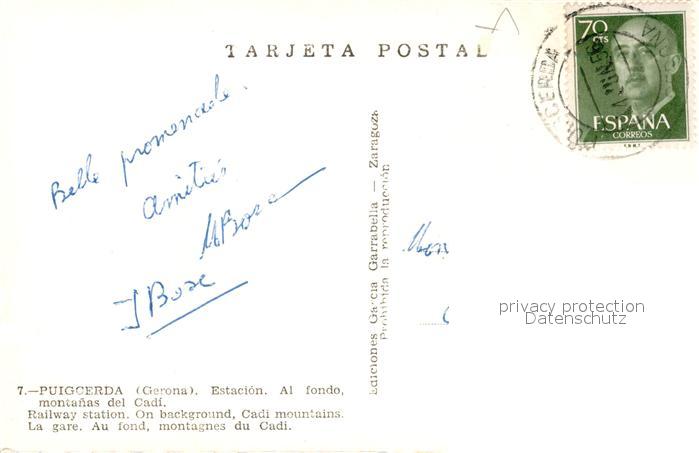 TARJETA POSTAL
70
CTS
ESPAÑA
CORREOS
Belle promenade.
Amitiés
Ediciones García Garrabella — Zaragoza
Prohibida la reproducción
privacy protection
Datenschutz
7.—PUIGCERDA (Gerona). Estación. Al fondo,
montañas del Cadí.
Railway station. On background, Cadi mountains.
La gare. Au fond, montagnes du Cadi.